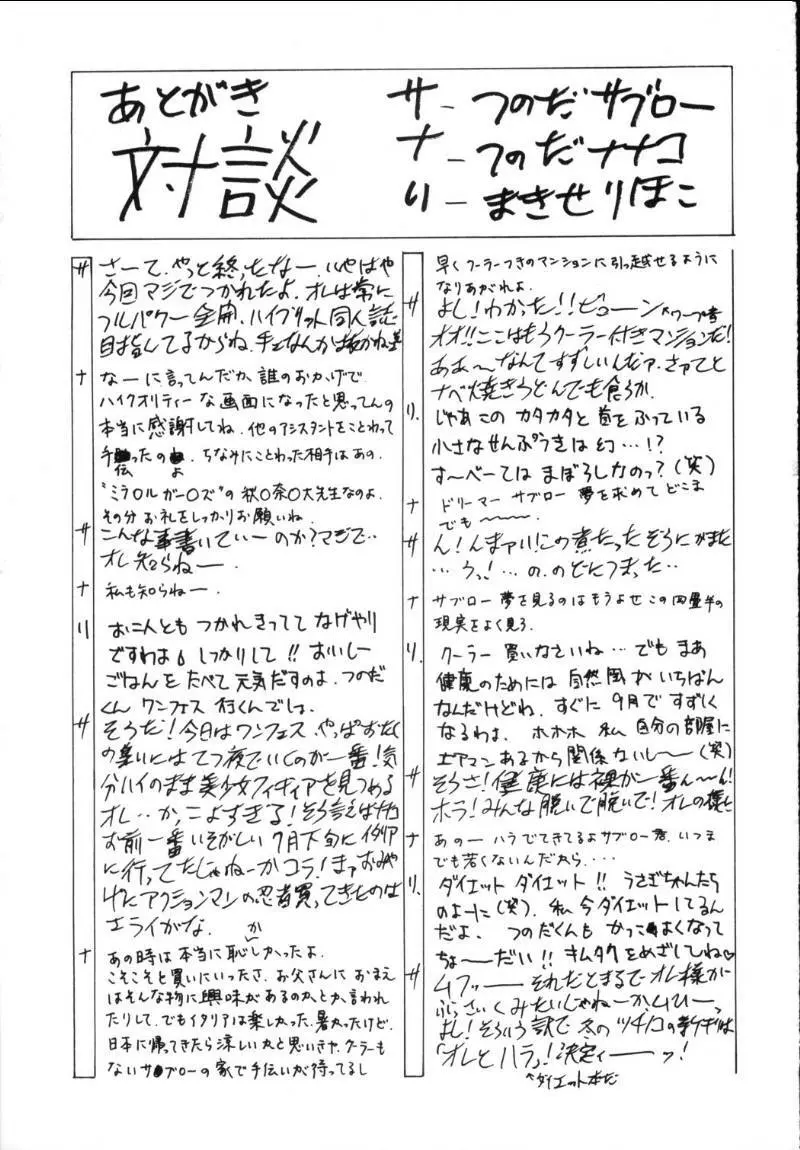 あとがき
対談
サ－つのだサブロー
ナ－つのだナナコ
り－まきせりほこ
サ さーて、やっと終ったなー、いやはや
今回マジでつかれたよ。オレは常に
フルパワー全開、ハイブリット同人誌
目指してるからね。手なんかは抜かねェ
ナ なーに言ってんだか、誰のおかげで
ハイクオリティーな画面になったと思ってんの
本当に感謝してね。他のアシスタントをことわって
手伝ったのよ。ちなみにことわった相手はあの、
"ミラ〇ル ガー〇ズ"の秋〇奈〇大先生なのよ。
その分お礼をしっかりお願いね。
サ こんな事書いていーのか？マジで…
オレ知らねー。
ナ 私も知らねー。
り お二人とも つかれきってて なげやり
ですわよ。しっかりして!! おいしー
ごはんを たべて 元気だすのよ。つのだ
くん ワンフェス 行くんでしょ。
サ そうだ！今日はワンフェス。やっぱおたく
の集いにはてつ夜でいくのが一番！気
分ハイのまま美少女フィギュアを見つめる
オレ…か、こよすぎる！そう言えばナナコ
お前一番いそがしい7月下旬にイタリア
に行ってたじゃねーかコラ！まぁおみや
げにアクションマンの忍者買ってきたのは
エライがな。
か
ナ あの時は本当に恥しかったよ。
こそこそと買いにいったさ。お父さんに おまえ
はそんな物に興味があるのかとか、言われ
たりして。でもイタリアは楽しかった。暑かったけど。
日本に帰ってきたら涼しいかと思いきや、クーラーも
ないサブローの家で手伝いが待ってるし
早くクーラーつきのマンションに引っ越せるように
なりあがれよ。
サ よし！わかった!!ビューン ↖ワープ音
オオ!!ここはもうクーラー付きマンションだ！
ああ〜なんてすずしいんだァ。さァてと
ナベ焼きうどんでも食うか。
り、 じゃあこの カタカタと首をふっている
小さなせんぷうきは 幻…!?
す〜べーては まぼろしなのっ？（笑）
ナ ドリーマー サブロー 夢を求めて どこま
でも〜〜〜。
サ ん！んまァい！この煮たったぞうにがまた
…うっ！…の、のどにつまった…
ナ サブロー 夢を見るのはもうよせ この四畳半の
現実をよく見ろ。
り、 クーラー 買いなさいね… でも まあ
健康のためには 自然風が いちばん
なんだけどね。すぐに 9月で すずしく
なるわよ。ホホホ 私 自分の部屋に
エアマン あるから関係ないし〜（笑）
サ そうさ！健康には裸が一番ん〜ん！
ホラ！みんな脱いで脱いで！オレの様に
ナ あのー ハラでてきてるよ サブロー君、いつま
でも若くないんだから・・・・
り、 ダイエット ダイエット!! うさぎちゃんたち
のよーに（笑）。私 今ダイエットしてるん
だよ。つのだくんも かっこよくなって
ちょ〜だい!! キムタクをめざしてね♡
サ ムフッ── それだとまるで オレ様が
ぶさいくみたいじゃねーか、ムひーっ
よし！そういう訳で 冬の ツチノコの新ケギは
「オレと ハラ」！決定ィ──ッ！
↖ダイエット本だ